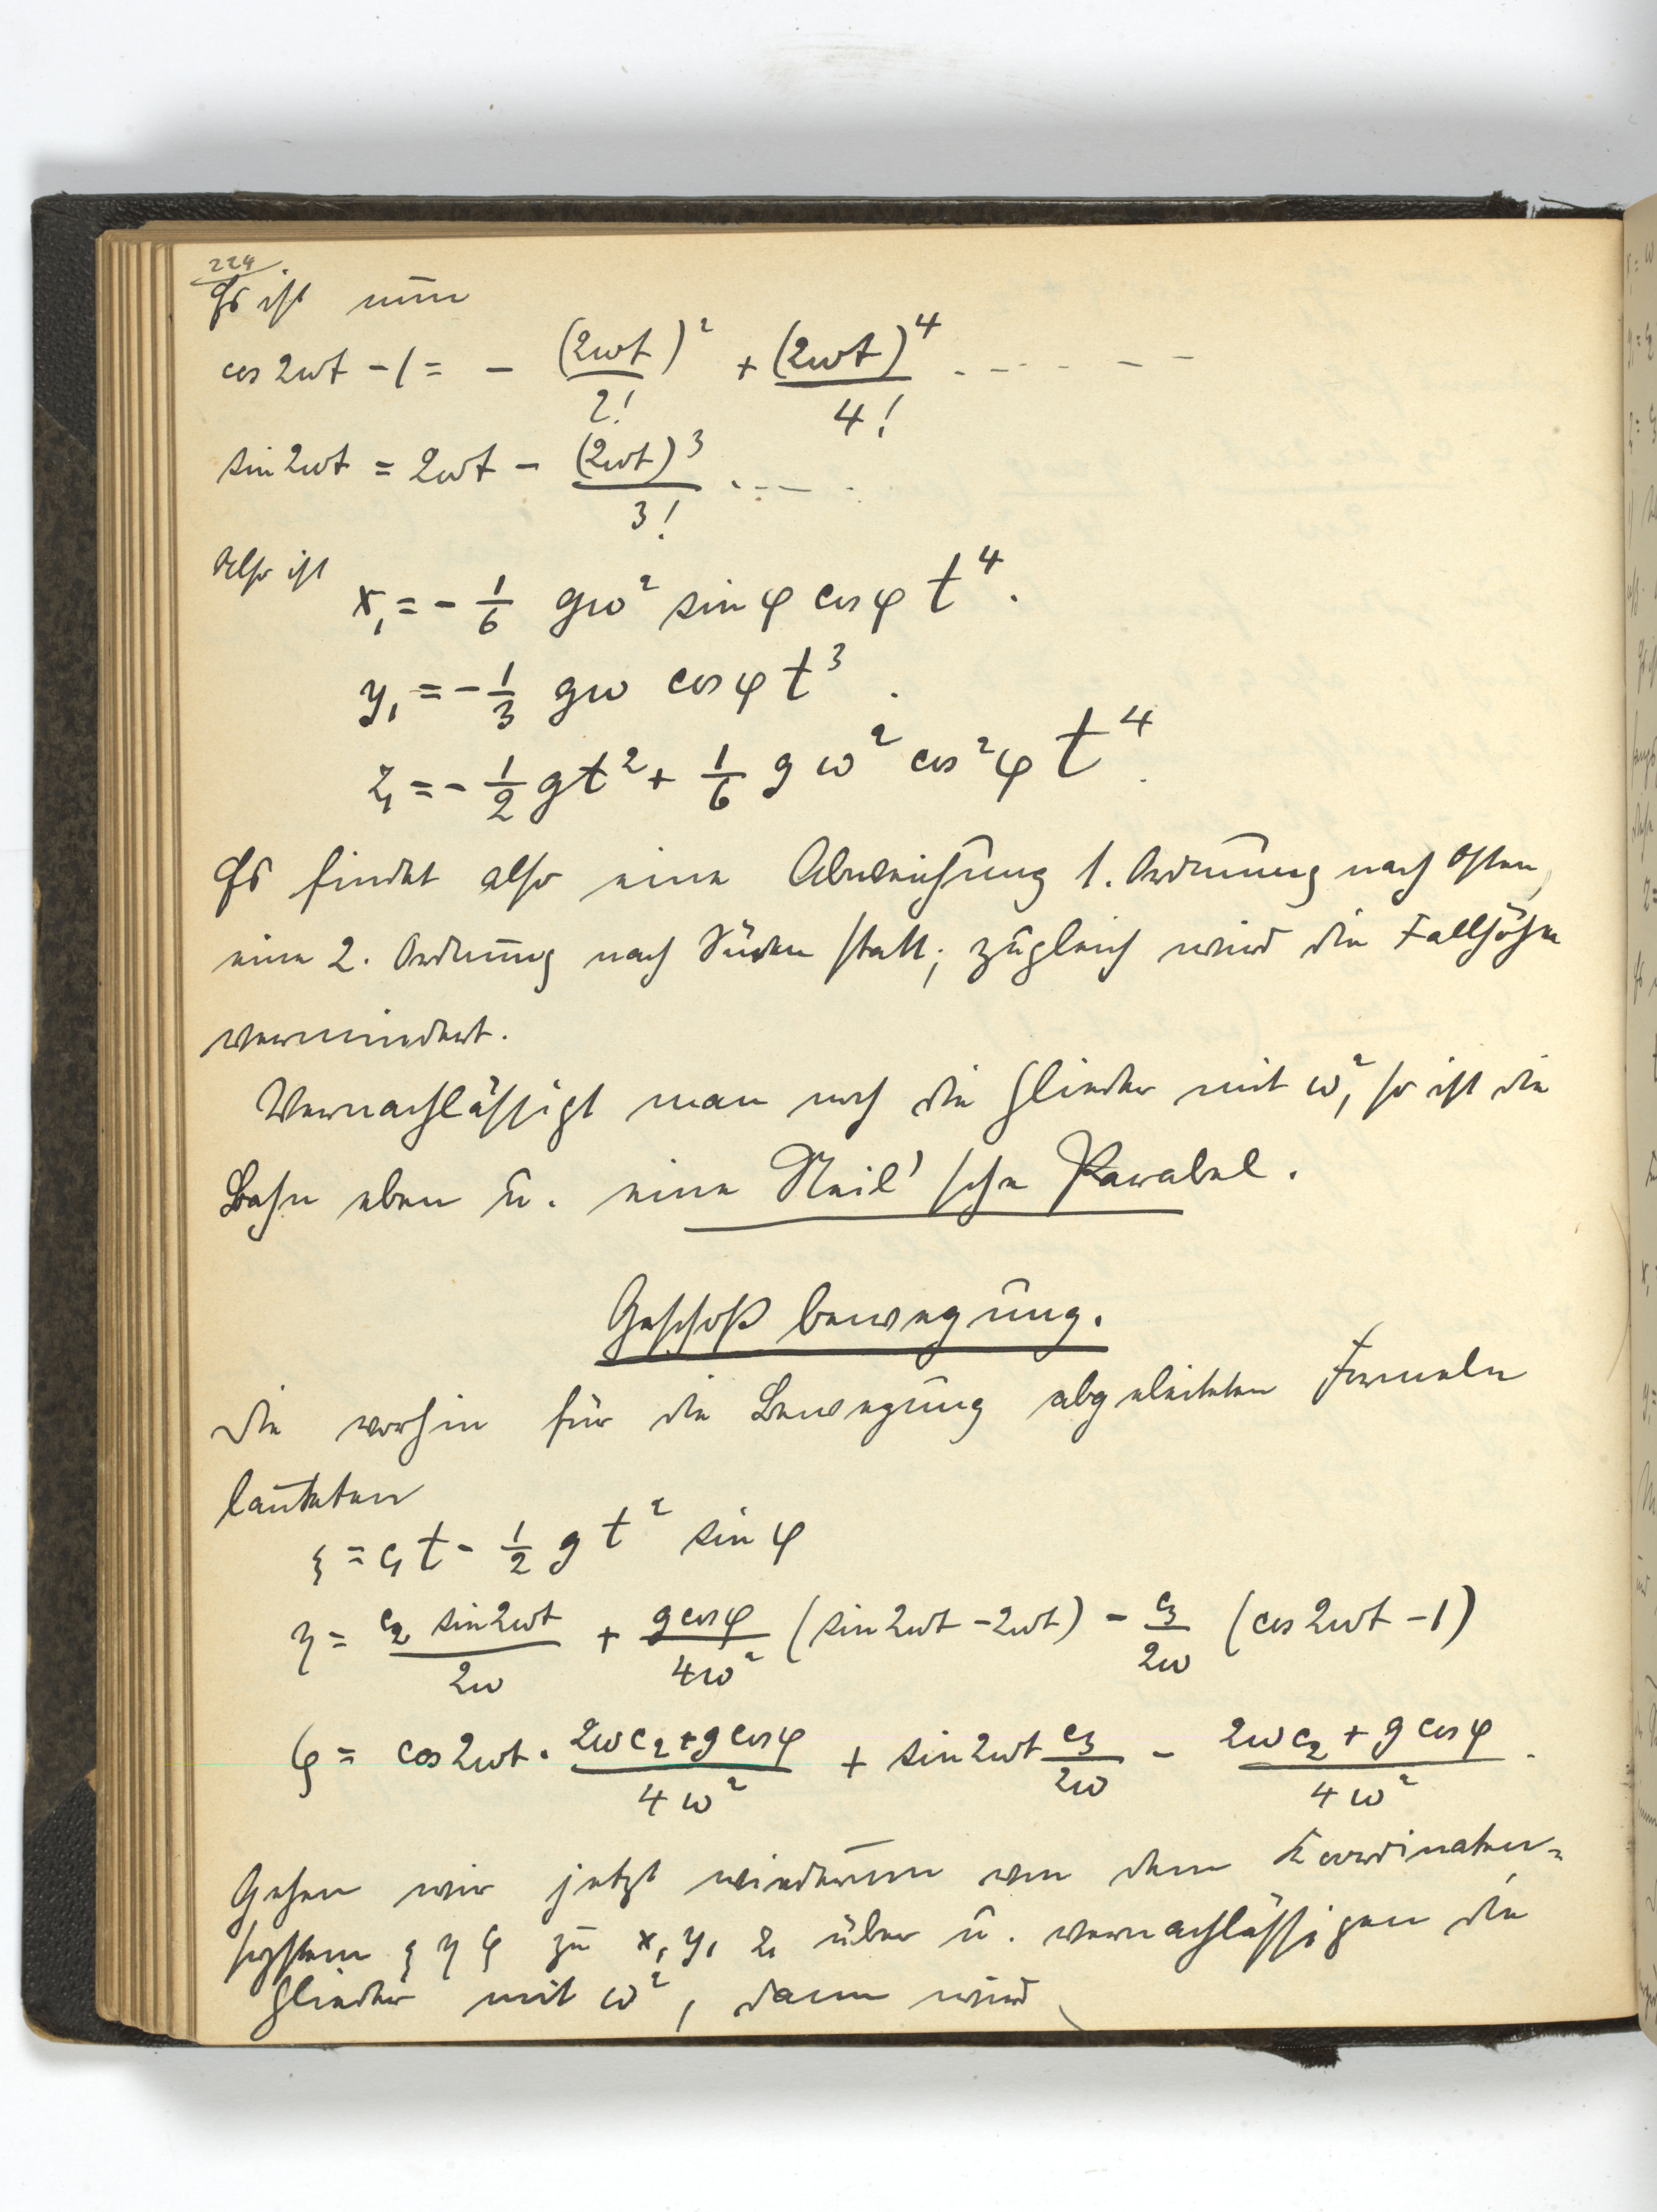 224.
Es ist nun
cos 2ωt - 1 = - (2ωt)²/2! + (2ωt)⁴/4! - - - - - -
sin 2ωt = 2ωt - (2ωt)³/3! - - - - -
Also ist
x₁ = - 1/6 gω² sin φ cos φ t⁴.
y₁ = - 1/3 gω cos φ t³.
z₁ = - 1/2 gt² + 1/6 g ω² cos² φ t⁴.
Es findet also eine Abweichung 1. Ordnung nach Osten,
eine 2. Ordnung nach Süden statt; zugleich wird die Fallhöhe
vermindert.
Vernachlässigt man noch die Glieder mit ω², so ist die
Bahn eben u. eine Neil'sche Parabel.
Geschoßbewegung.
Die vorhin für die Bewegung abgeleiteten Formeln
lauteten
ξ = c₁t - 1/2 g t² sin φ
η = c₂ sin 2ωt/2ω + g cos φ/4ω² (sin 2ωt - 2ωt) - c₃/2ω (cos 2ωt - 1)
ζ = cos 2ωt · 2ωc₂ + g cos φ/4ω² + sin 2ωt c₃/2ω - 2ωc₂ + g cos φ/4ω².
Gehen wir jetzt wiederum von dem Koordinaten-
system ξ η ζ zu x₁ y₁ z₁ über u. vernachlässigen die
Glieder mit ω², dann wird